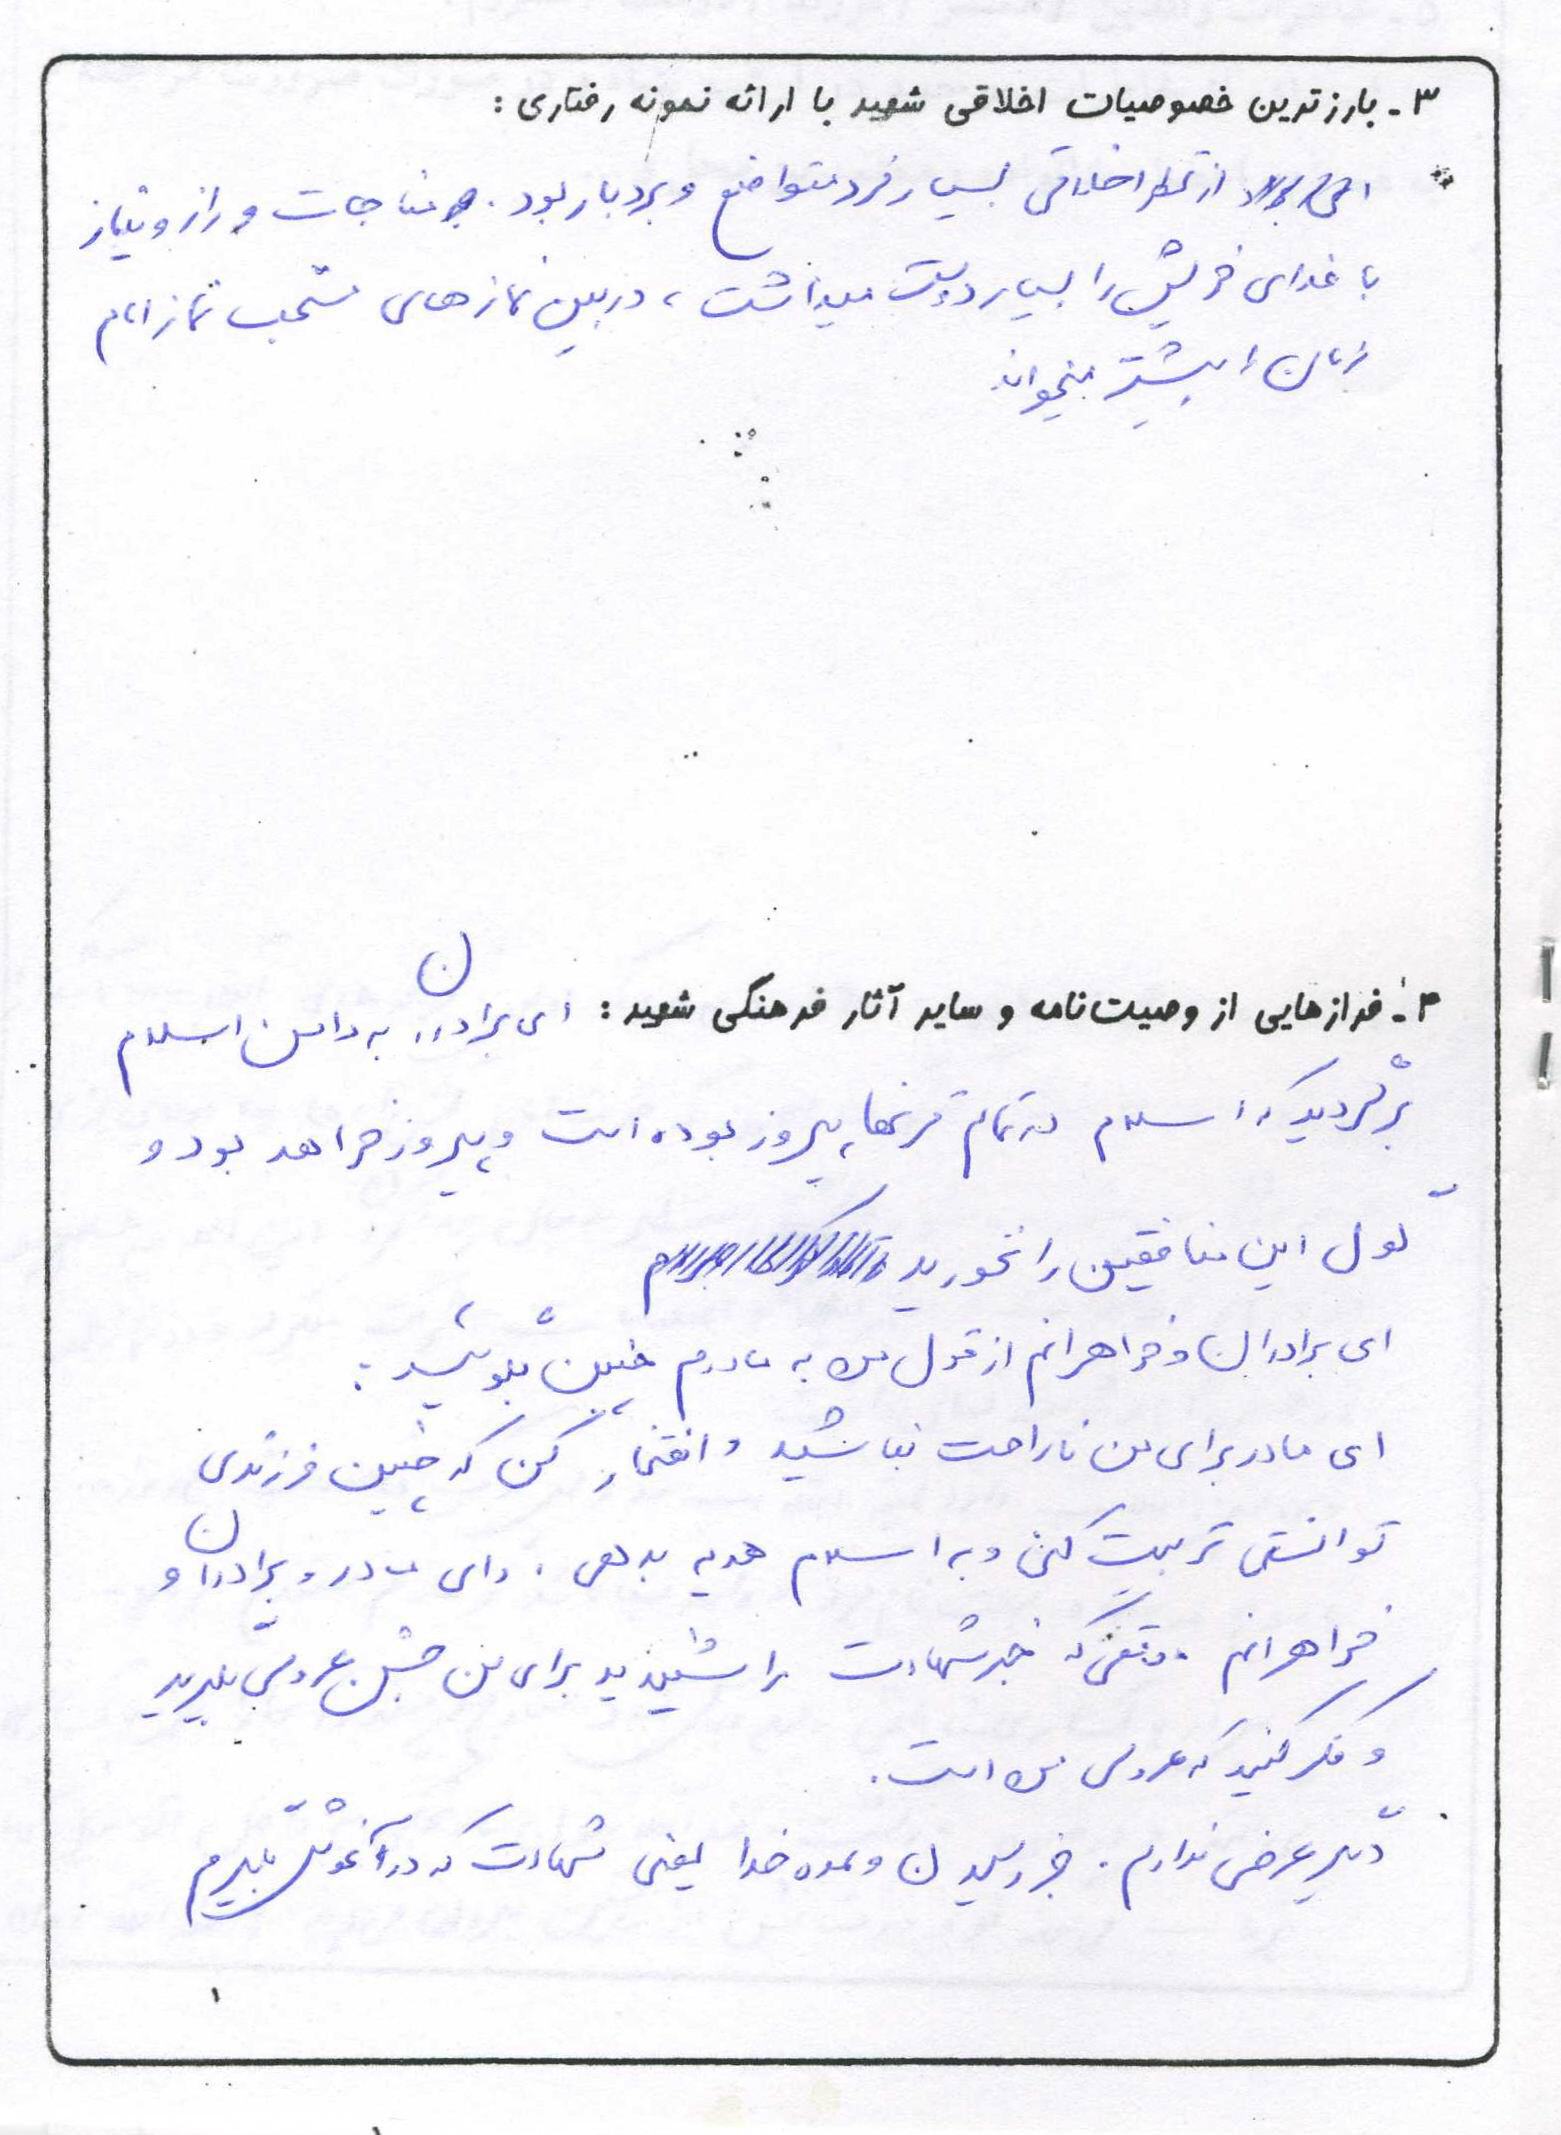 ۳- بارزترین خصوصیات اخلاقی شهید با ارائه نمونه رفتاری :
از نظر اخلاقی بسیار فرد متواضع و بردبار بود. مناجات و راز و نیاز
با خدای خویش را بسیار دوست میداشت ، در بین نمازهای مستحب نماز امام
زمان را بیشتر میخواند
۴- فرازهایی از وصیت‌نامه و سایر آثار فرهنگی شهید : ای برادران به دامن اسلام
برگردید که اسلام در تمام قرنها پیروز بوده است و پیروز خواهد بود و
گول این منافقین را نخورید
ای برادران و خواهرانم از قول من به مادرم چنین بگوئید :
ای مادر برای من ناراحت نباشید و افتخار کن که چنین فرزندی
توانستی تربیت کنی و به اسلام هدیه بدهی . و ای مادر و برادران و
خواهرانم وقتی که خبر شهادت را شنیدید برای من جشن عروسی بگیرید
و فکر کنید که عروسی من است .
دیگر عرضی ندارم . جز رسیدن وعده خدا یعنی شهادت که در آغوش بگیرم
۱